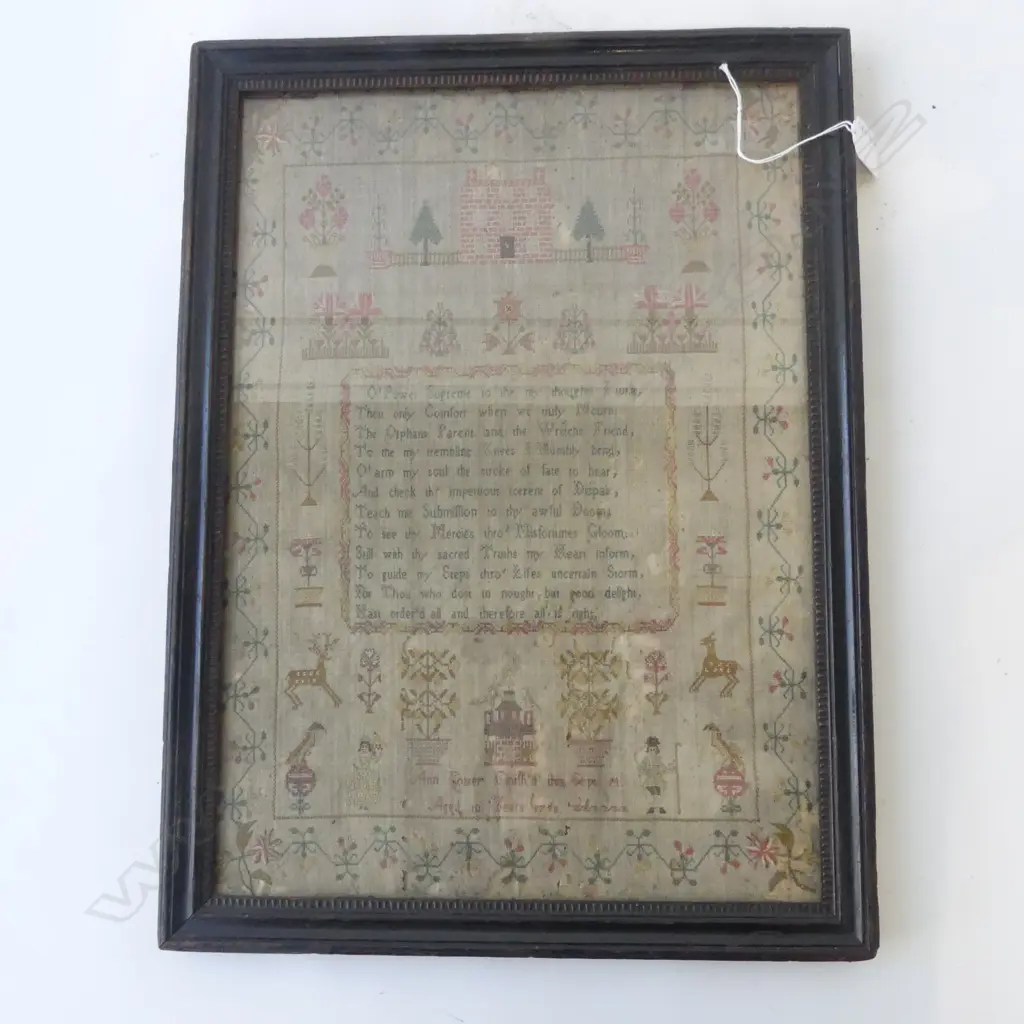 O! Power Supreme to the my thoughts
Thou only Comfort when we duly Mourn,
The Orphans Parent and the Wretchs Friend,
To the my trembling I humbly bend,
O! arm my soul the stroke of fate to bear,
And check th' impetuous torrent of Despair,
Teach me Submission to thy awful Doom,
To see thy Mercies thro' Misfortunes Gloom,
Still with thy sacred Truths my Heart inform,
To guide my Steps thro' Lifes uncertain Storm,
For Thou who dost in nought but good delight,
Hast order'd all and therefore all is right.
Ann this
Aged 10 Years